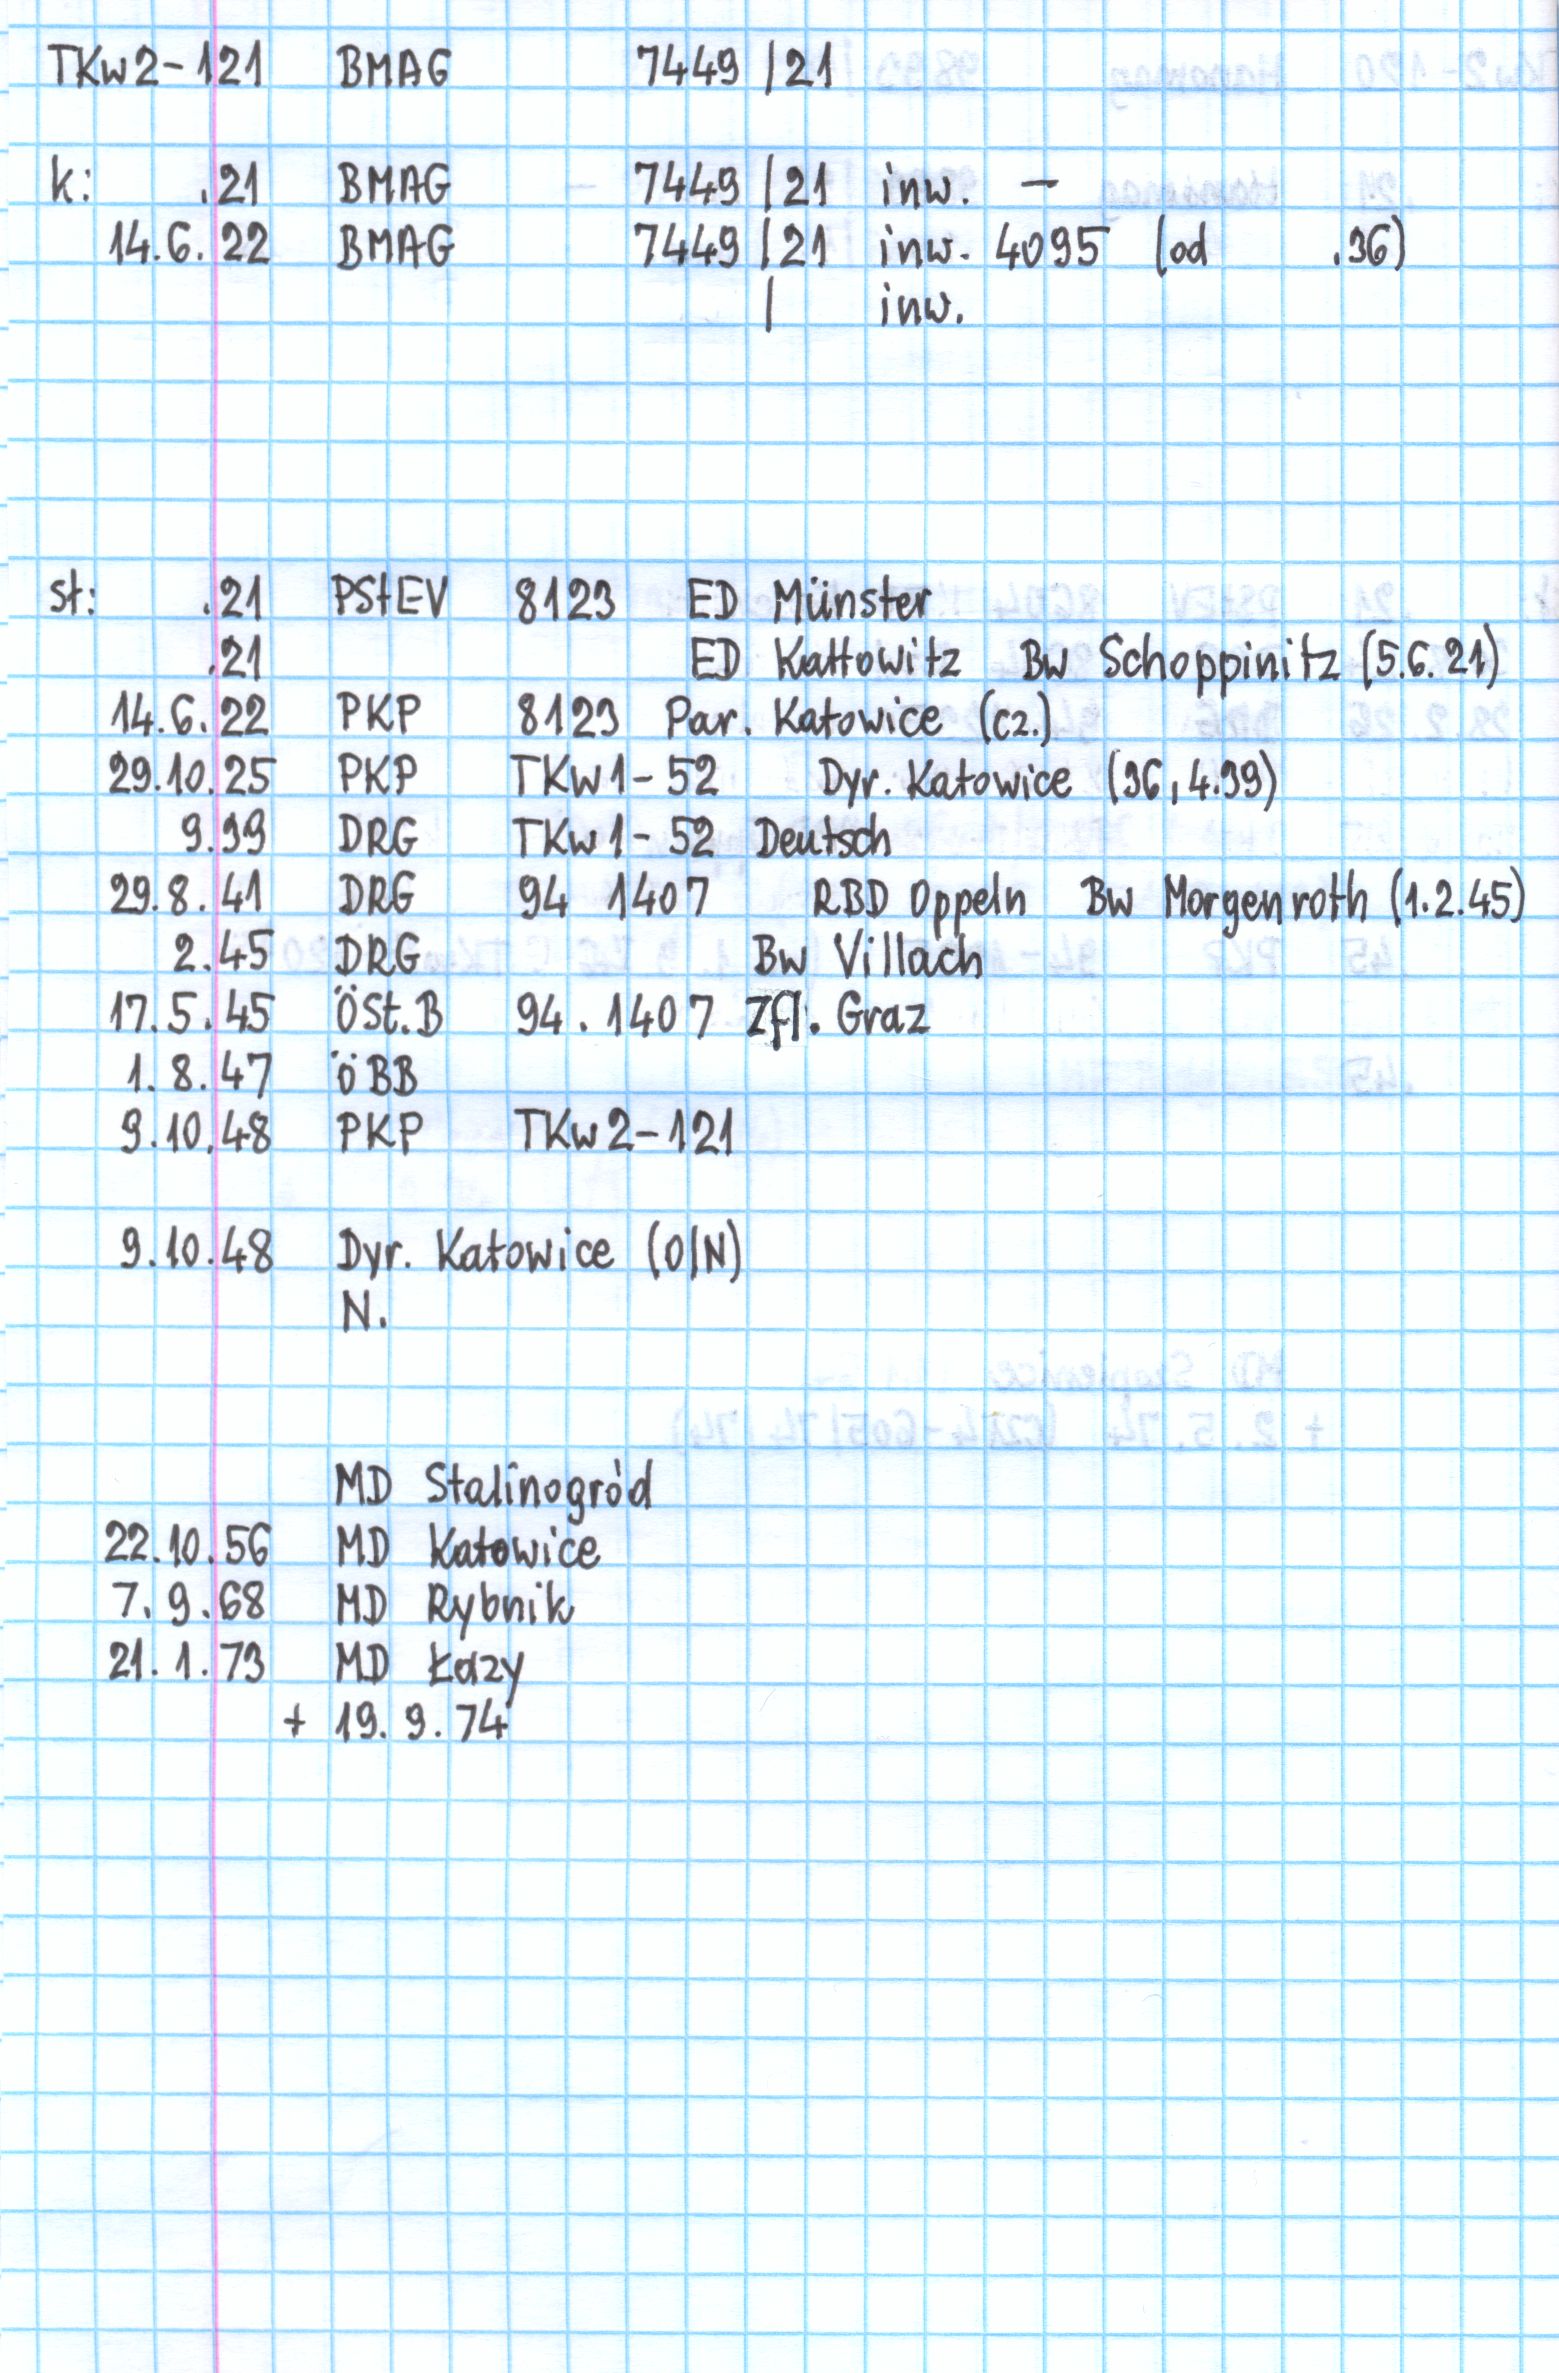 TKw2-121 BMAG 7449/21
k: .21 BMAG 7449/21 inw. -
14.6.22 BMAG 7449/21 inw. 4095 (od .36)
/ inw.
st: .21 PStEV 8123 ED Münster
.21 ED Kattowitz Bw Schoppinitz (5.6.21)
14.6.22 PKP 8123 Par. Katowice (cz.)
29.10.25 PKP TKw1-52 Dyr. Katowice (36, 4.39)
9.39 DRG TKw1-52 Deutsch
29.8.41 DRG 94 1407 RBD Oppeln Bw Morgenroth (1.2.45)
2.45 DRG Bw Villach
17.5.45 ÖSt.B 94.1407 Zfl. Graz
1.8.47 ÖBB
9.10.48 PKP TKw2-121
9.10.48 Dyr. Katowice (O/N)
N.
MD Stalinogród
22.10.56 MD Katowice
7.9.68 MD Rybnik
21.1.73 MD Łazy
+ 19.9.74